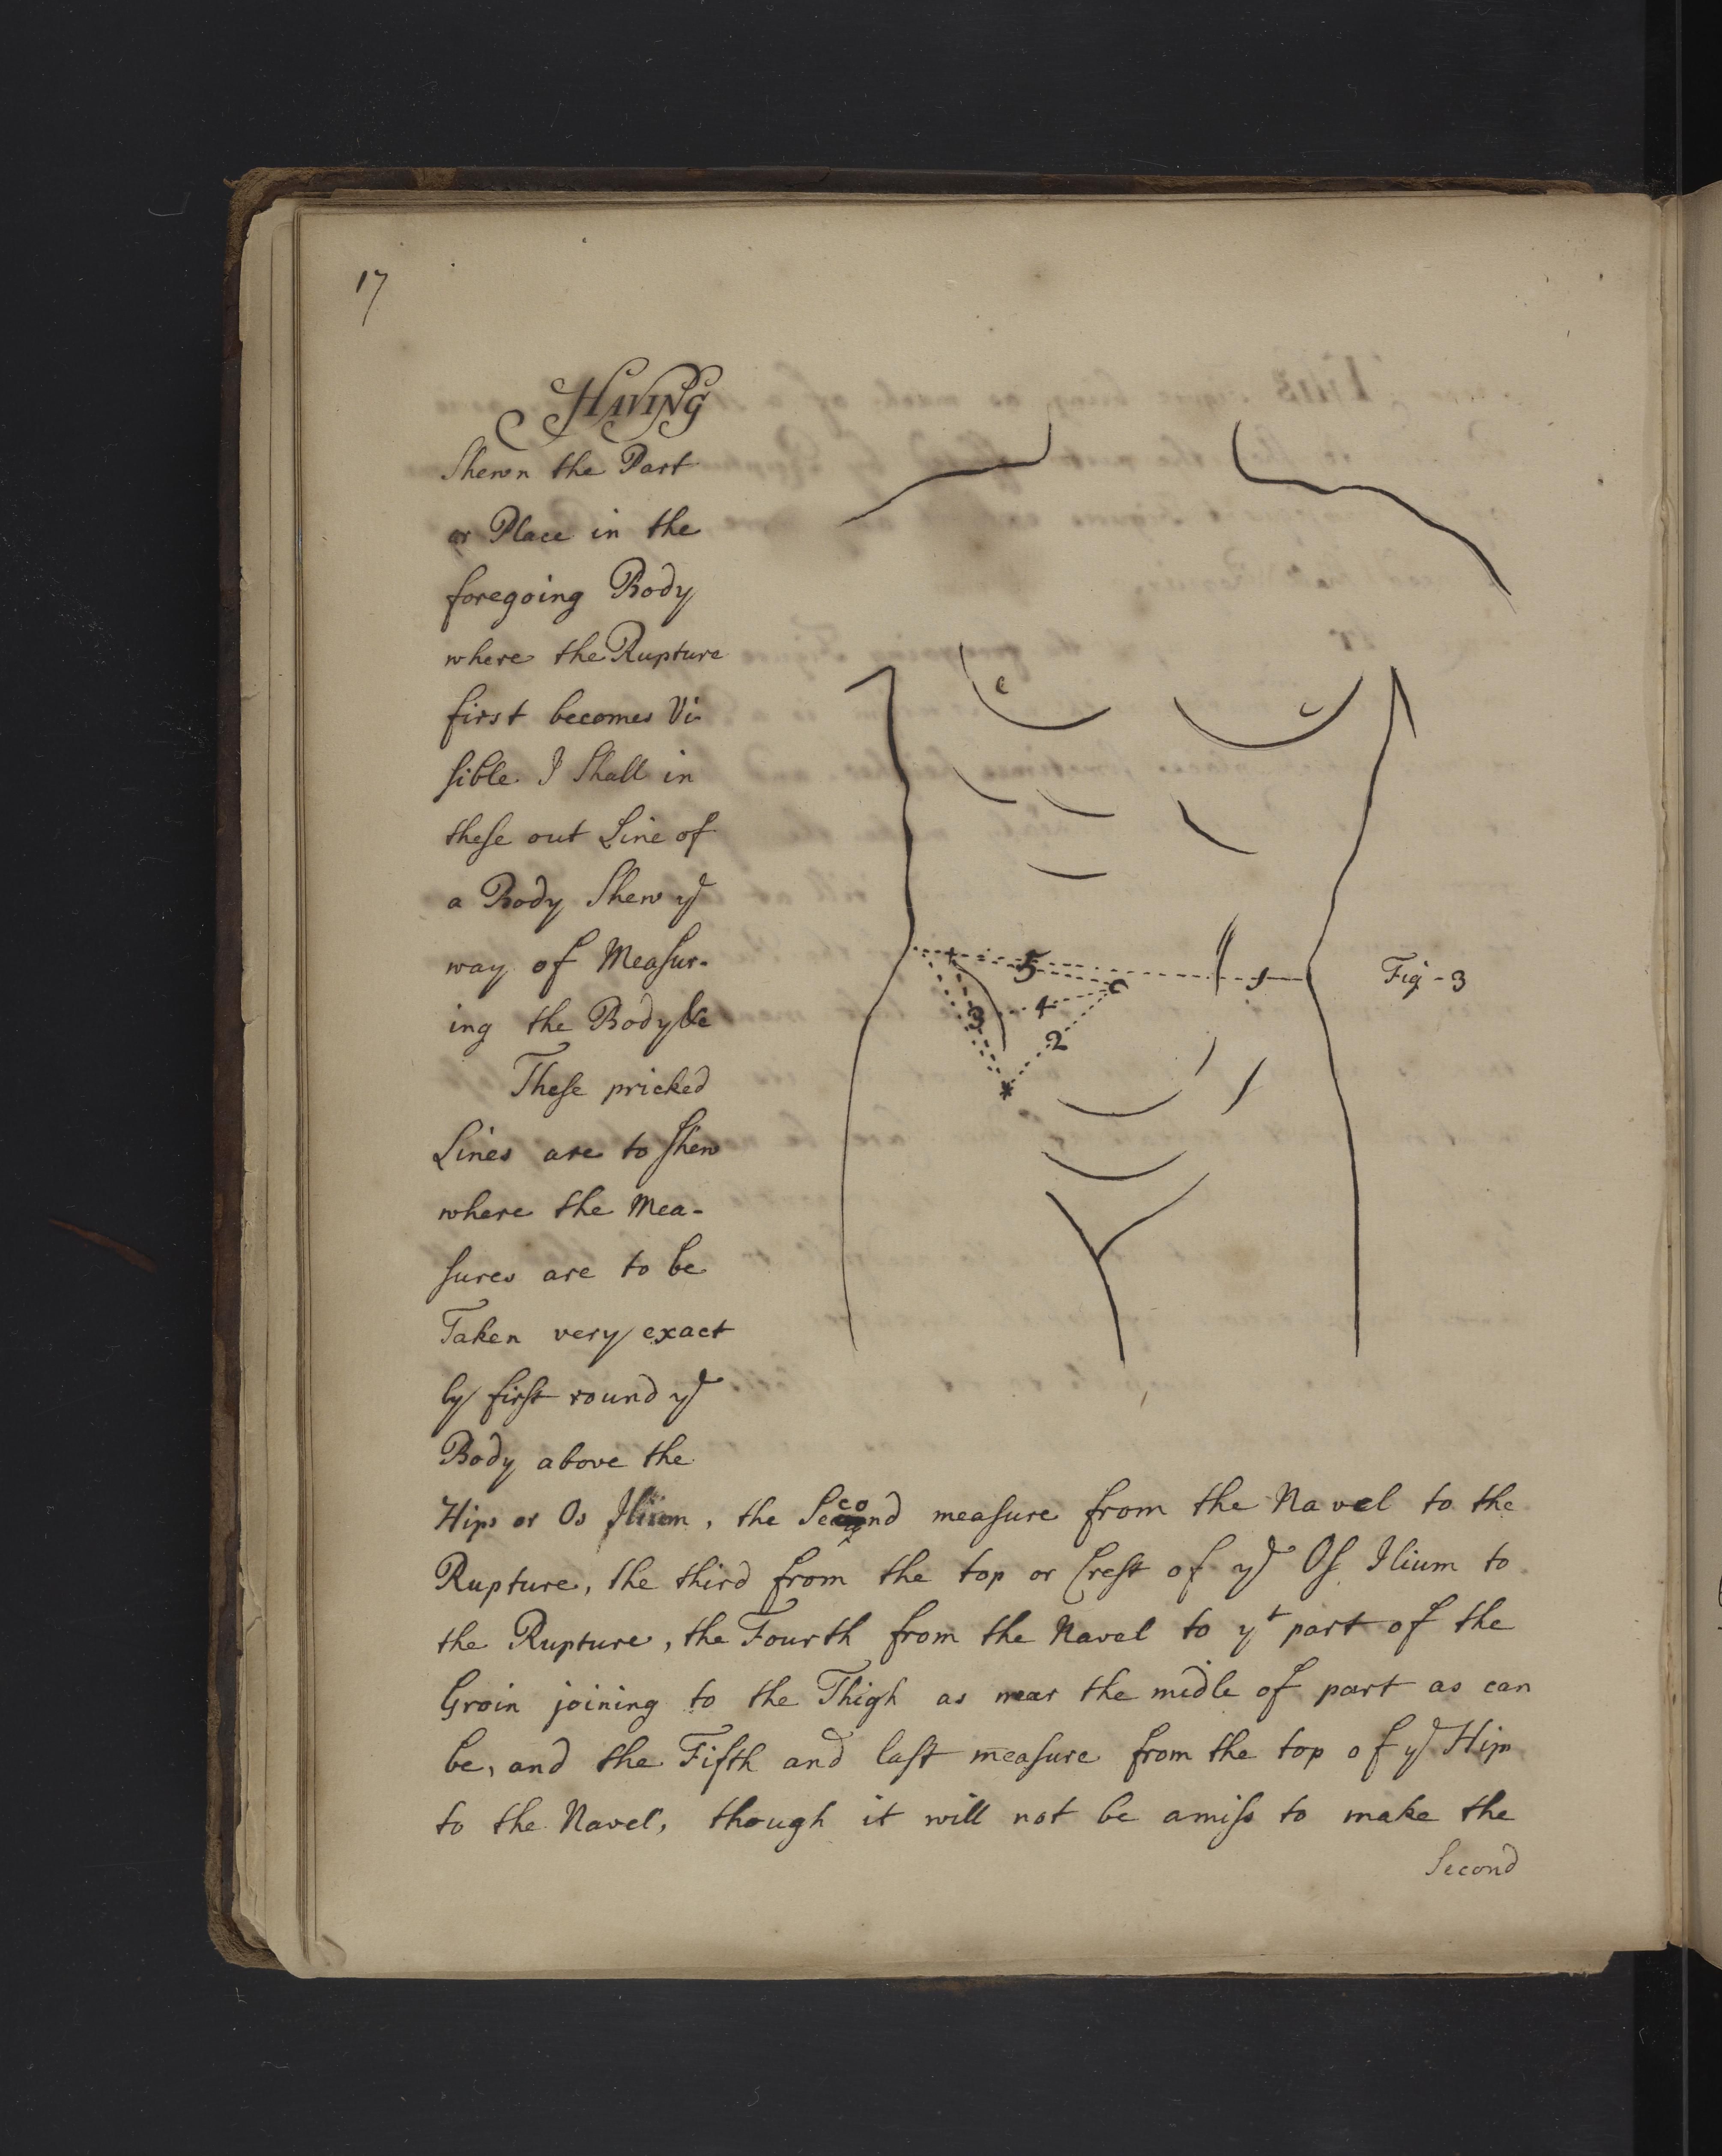 17
HAVING
Shewn the Part
or Place in the
foregoing Body
where the Rupture
first becomes Vi-
sible. I Shall in
these out Line of
a Body Shew yͤ
way of Measur-
ing the Body &c
These pricked
Lines are to shew
where the Mea-
sures are to be
Taken very exact
ly first round yͤ
Body above the
Hips or Os Ilium, the Second measure from the Navel to the
Rupture, the third from the top or Crest of yͤ Os Ilium to
the Rupture, the Fourth from the Navel to yᵗ part of the
Groin joining to the Thigh as near the midle of part as can
be, and the Fifth and last measure from the top of yͤ Hip
to the Navel, though it will not be amiss to make the
Second
5
1
Fig - 3
3
4
2